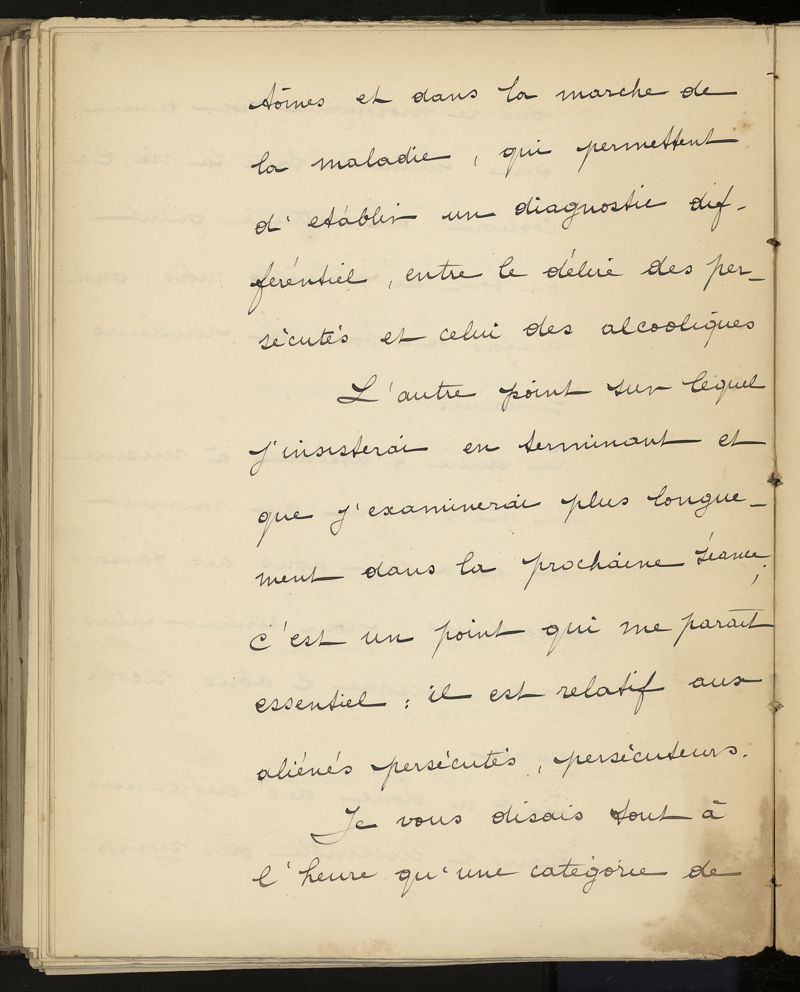 tômes et dans la marche de
la maladie, qui permettent
d'établir un diagnostic dif-
férentiel, entre le délire des per-
sécutés et celui des alcooliques
L'autre point sur lequel
j'insisterai en terminant et
que j'examinerai plus longue-
ment dans la prochaine séance,
c'est un point qui me paraît
essentiel : il est relatif aux
aliénés persécutés, persécuteurs.
Je vous disais tout à
l'heure qu'une catégorie de